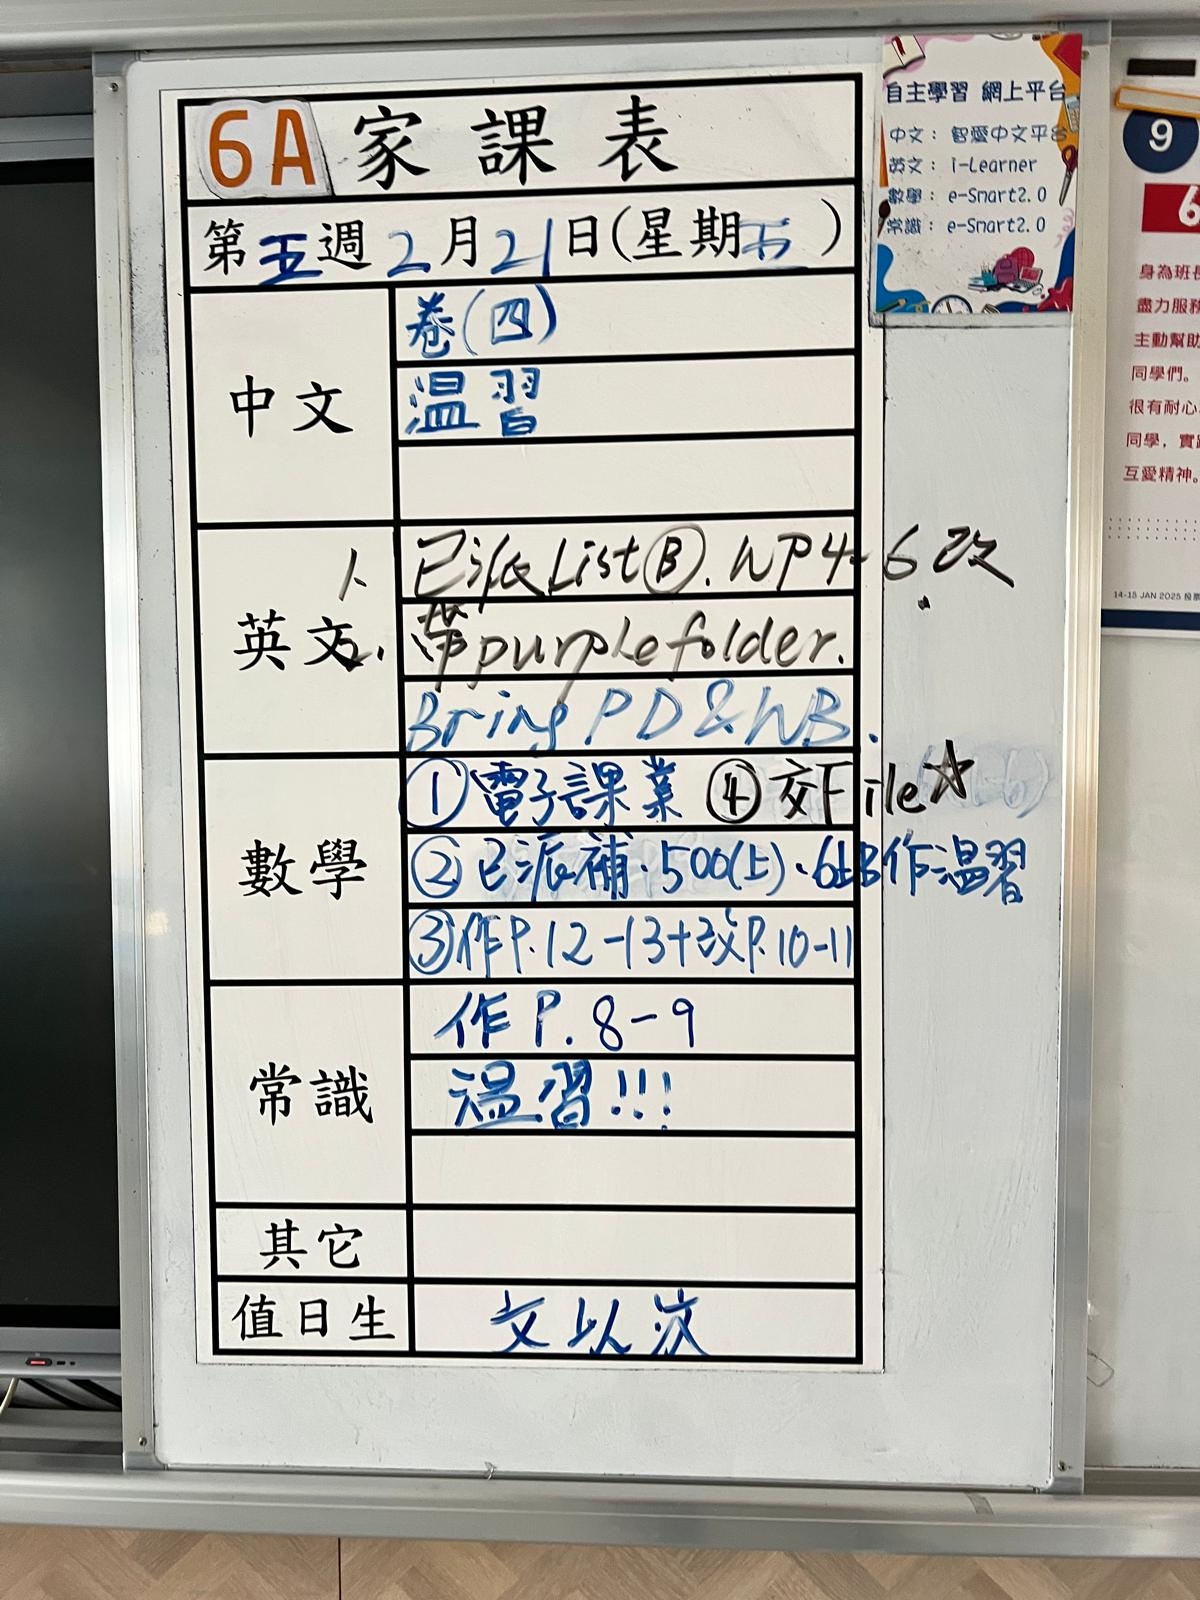 6A 家課表
第五週2月21日(星期五)
中文
卷(四)
温習
英文
1. 已派List Ⓑ. WP4-6改
2. 帶purple folder.
Bring PD & WB.
數學
①電子課業 ④交File☆
②已派補.500(上).6上B作温習
③作P.12-13+改P.10-11
常識
作P.8-9
温習!!!
其它
值日生
文以
自主學習 網上平台
中文：智愛中文平台
英文：i-Learner
數學：e-Smart2.0
常識：e-Smart2.0
9
6
身為班長
盡力服務
主動幫助
同學們。
很有耐心
同學，實踐
互愛精神。
14-15 JAN 2025 投票